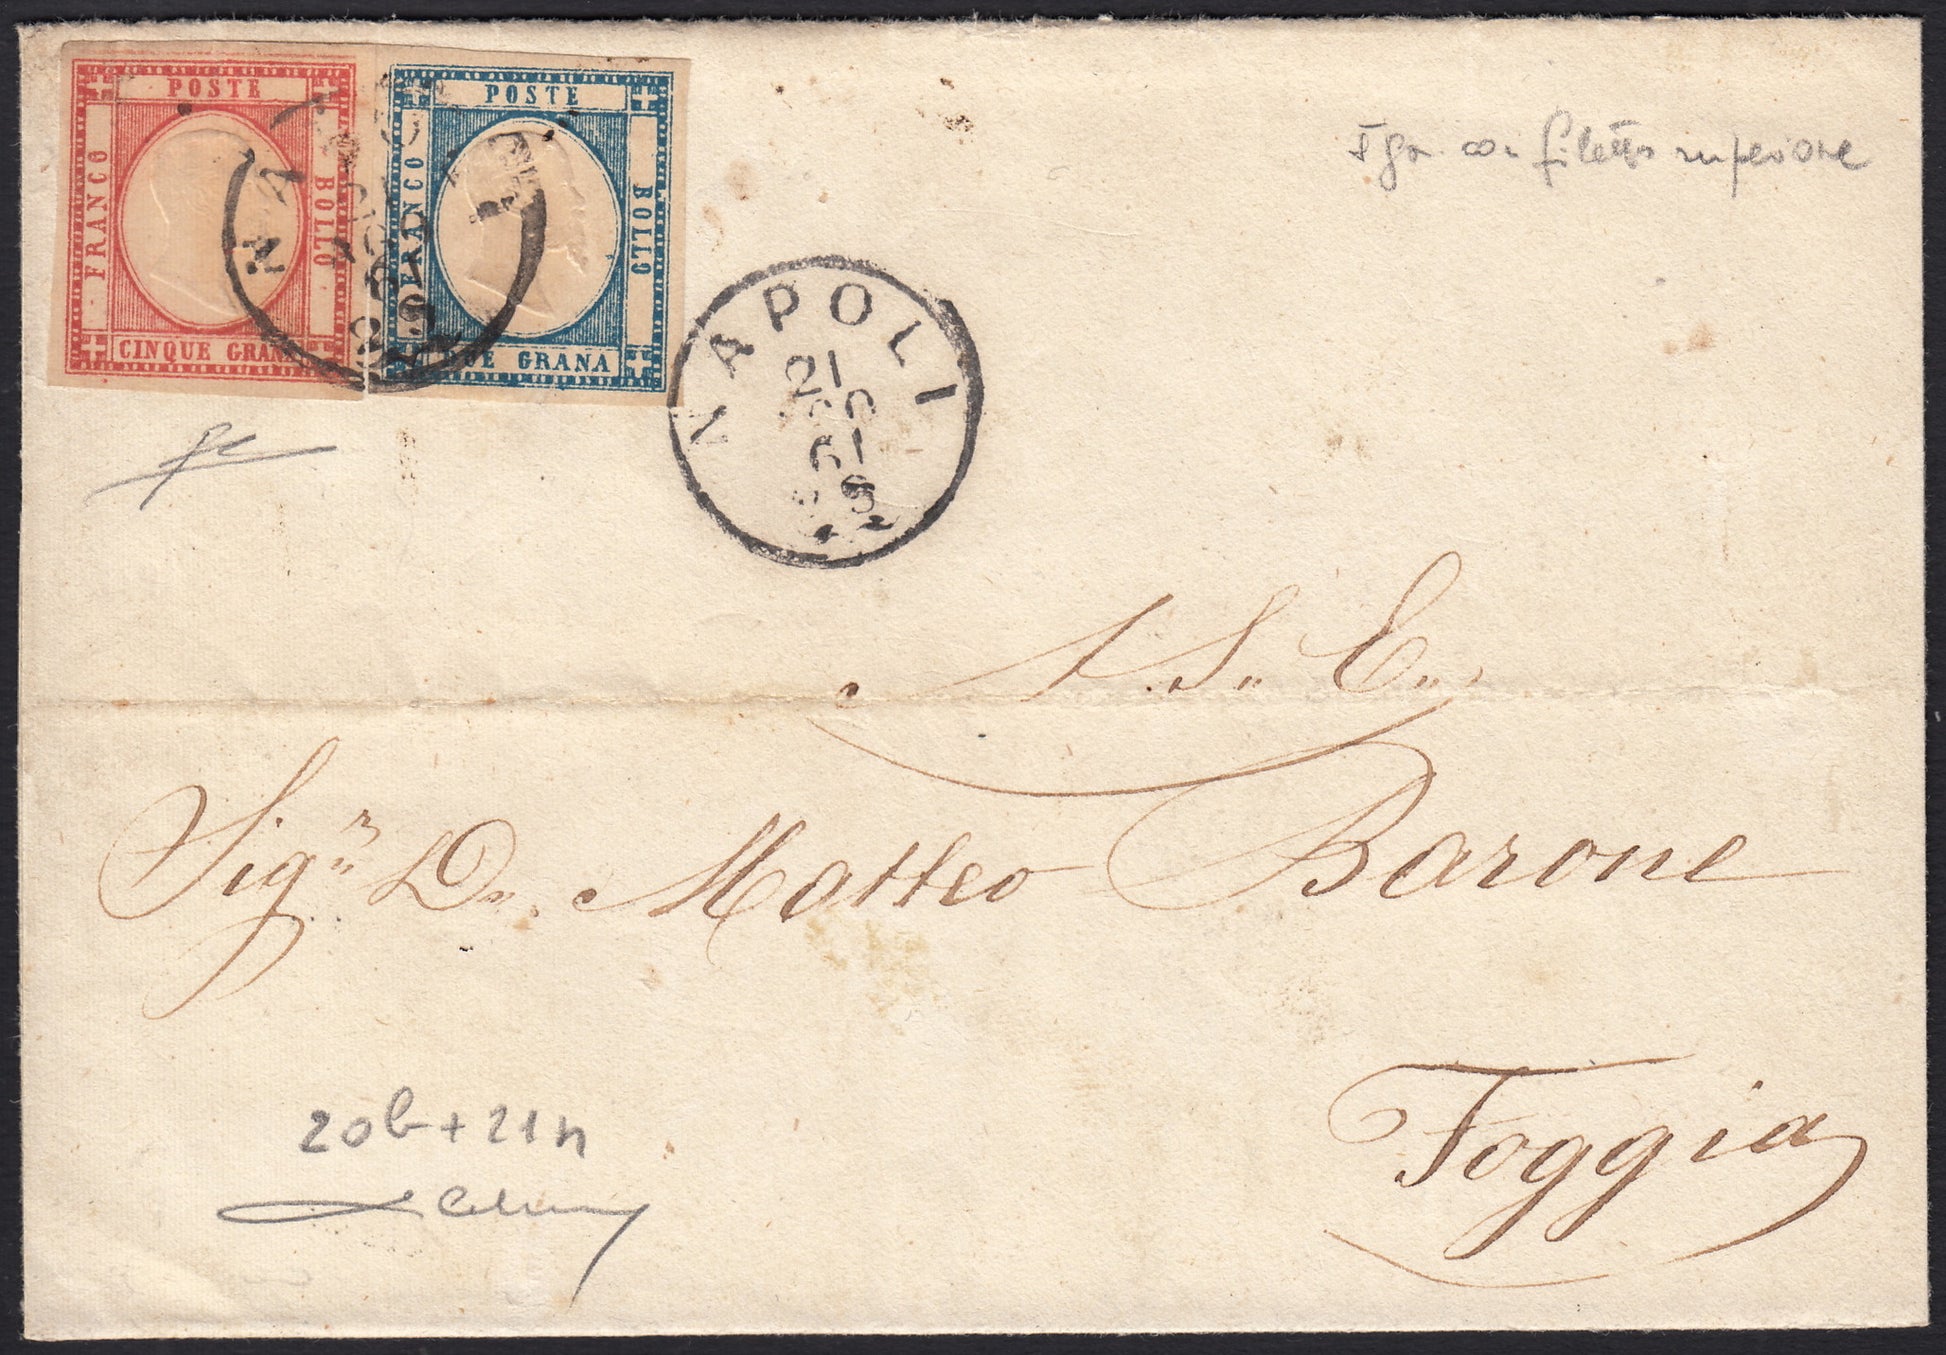 POSTE
FRANCO
BOLLO
CINQUE GRANA
POSTE
FRANCO
BOLLO
GRANA
NAPOLI
21
61
con filetto superiore
A S. E.
Sig.r D. Matteo Barone
Foggia
20b+21n